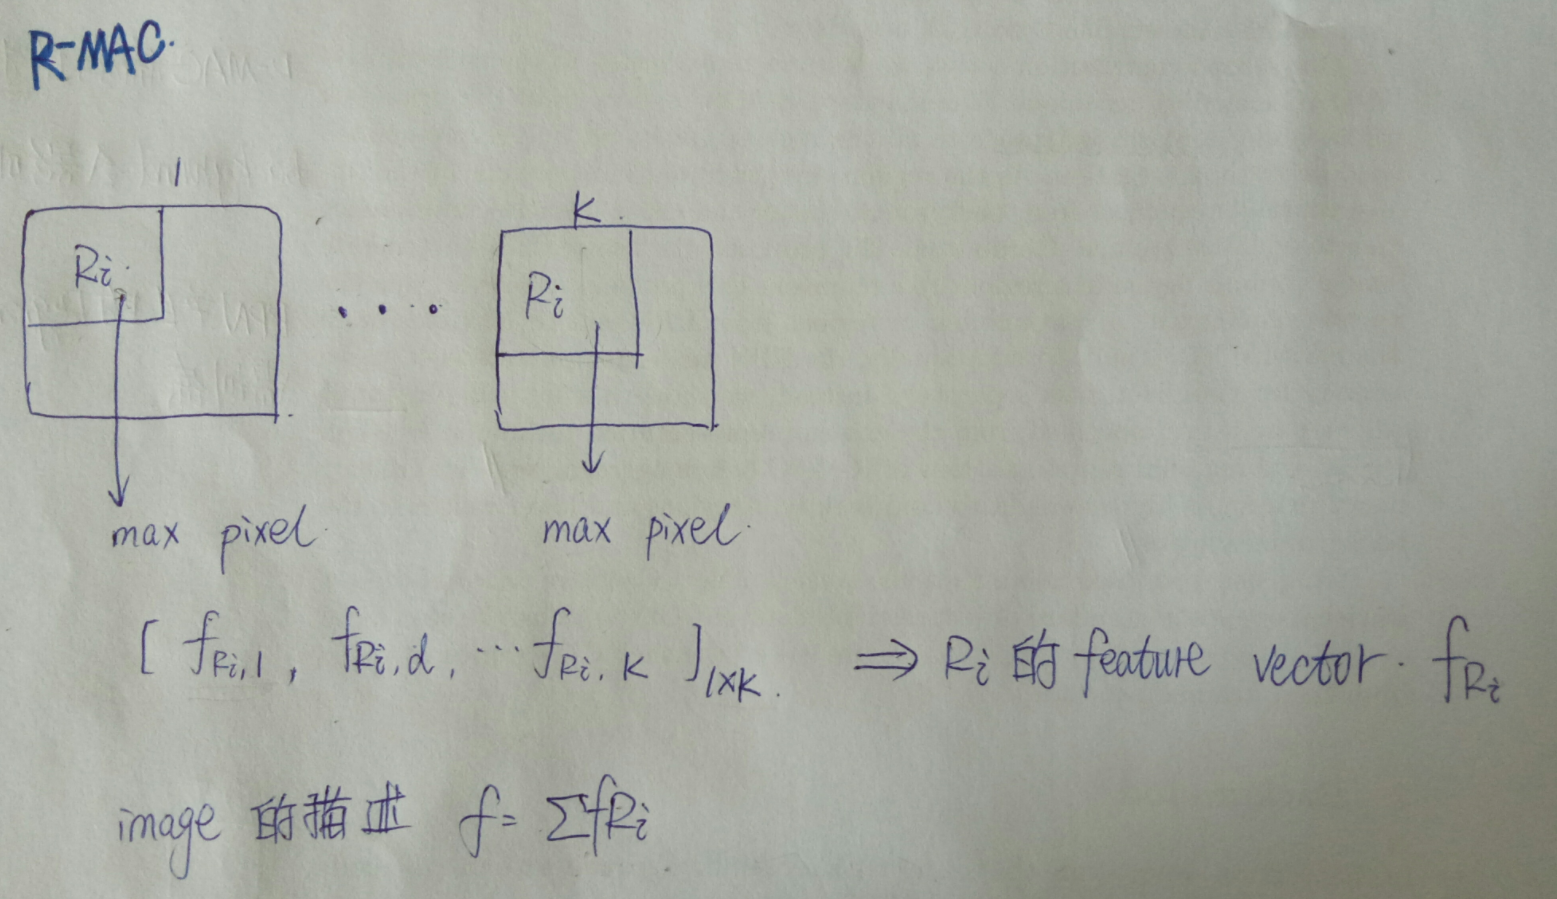 R-MAC.
1
K.
Ri
Ri
max pixel.
max pixel.
[ fRi,1, fRi,d, ... fRi,K ]1×K. ⇒ Ri 的 feature vector. fRi
image 的描述 f= ΣfRi